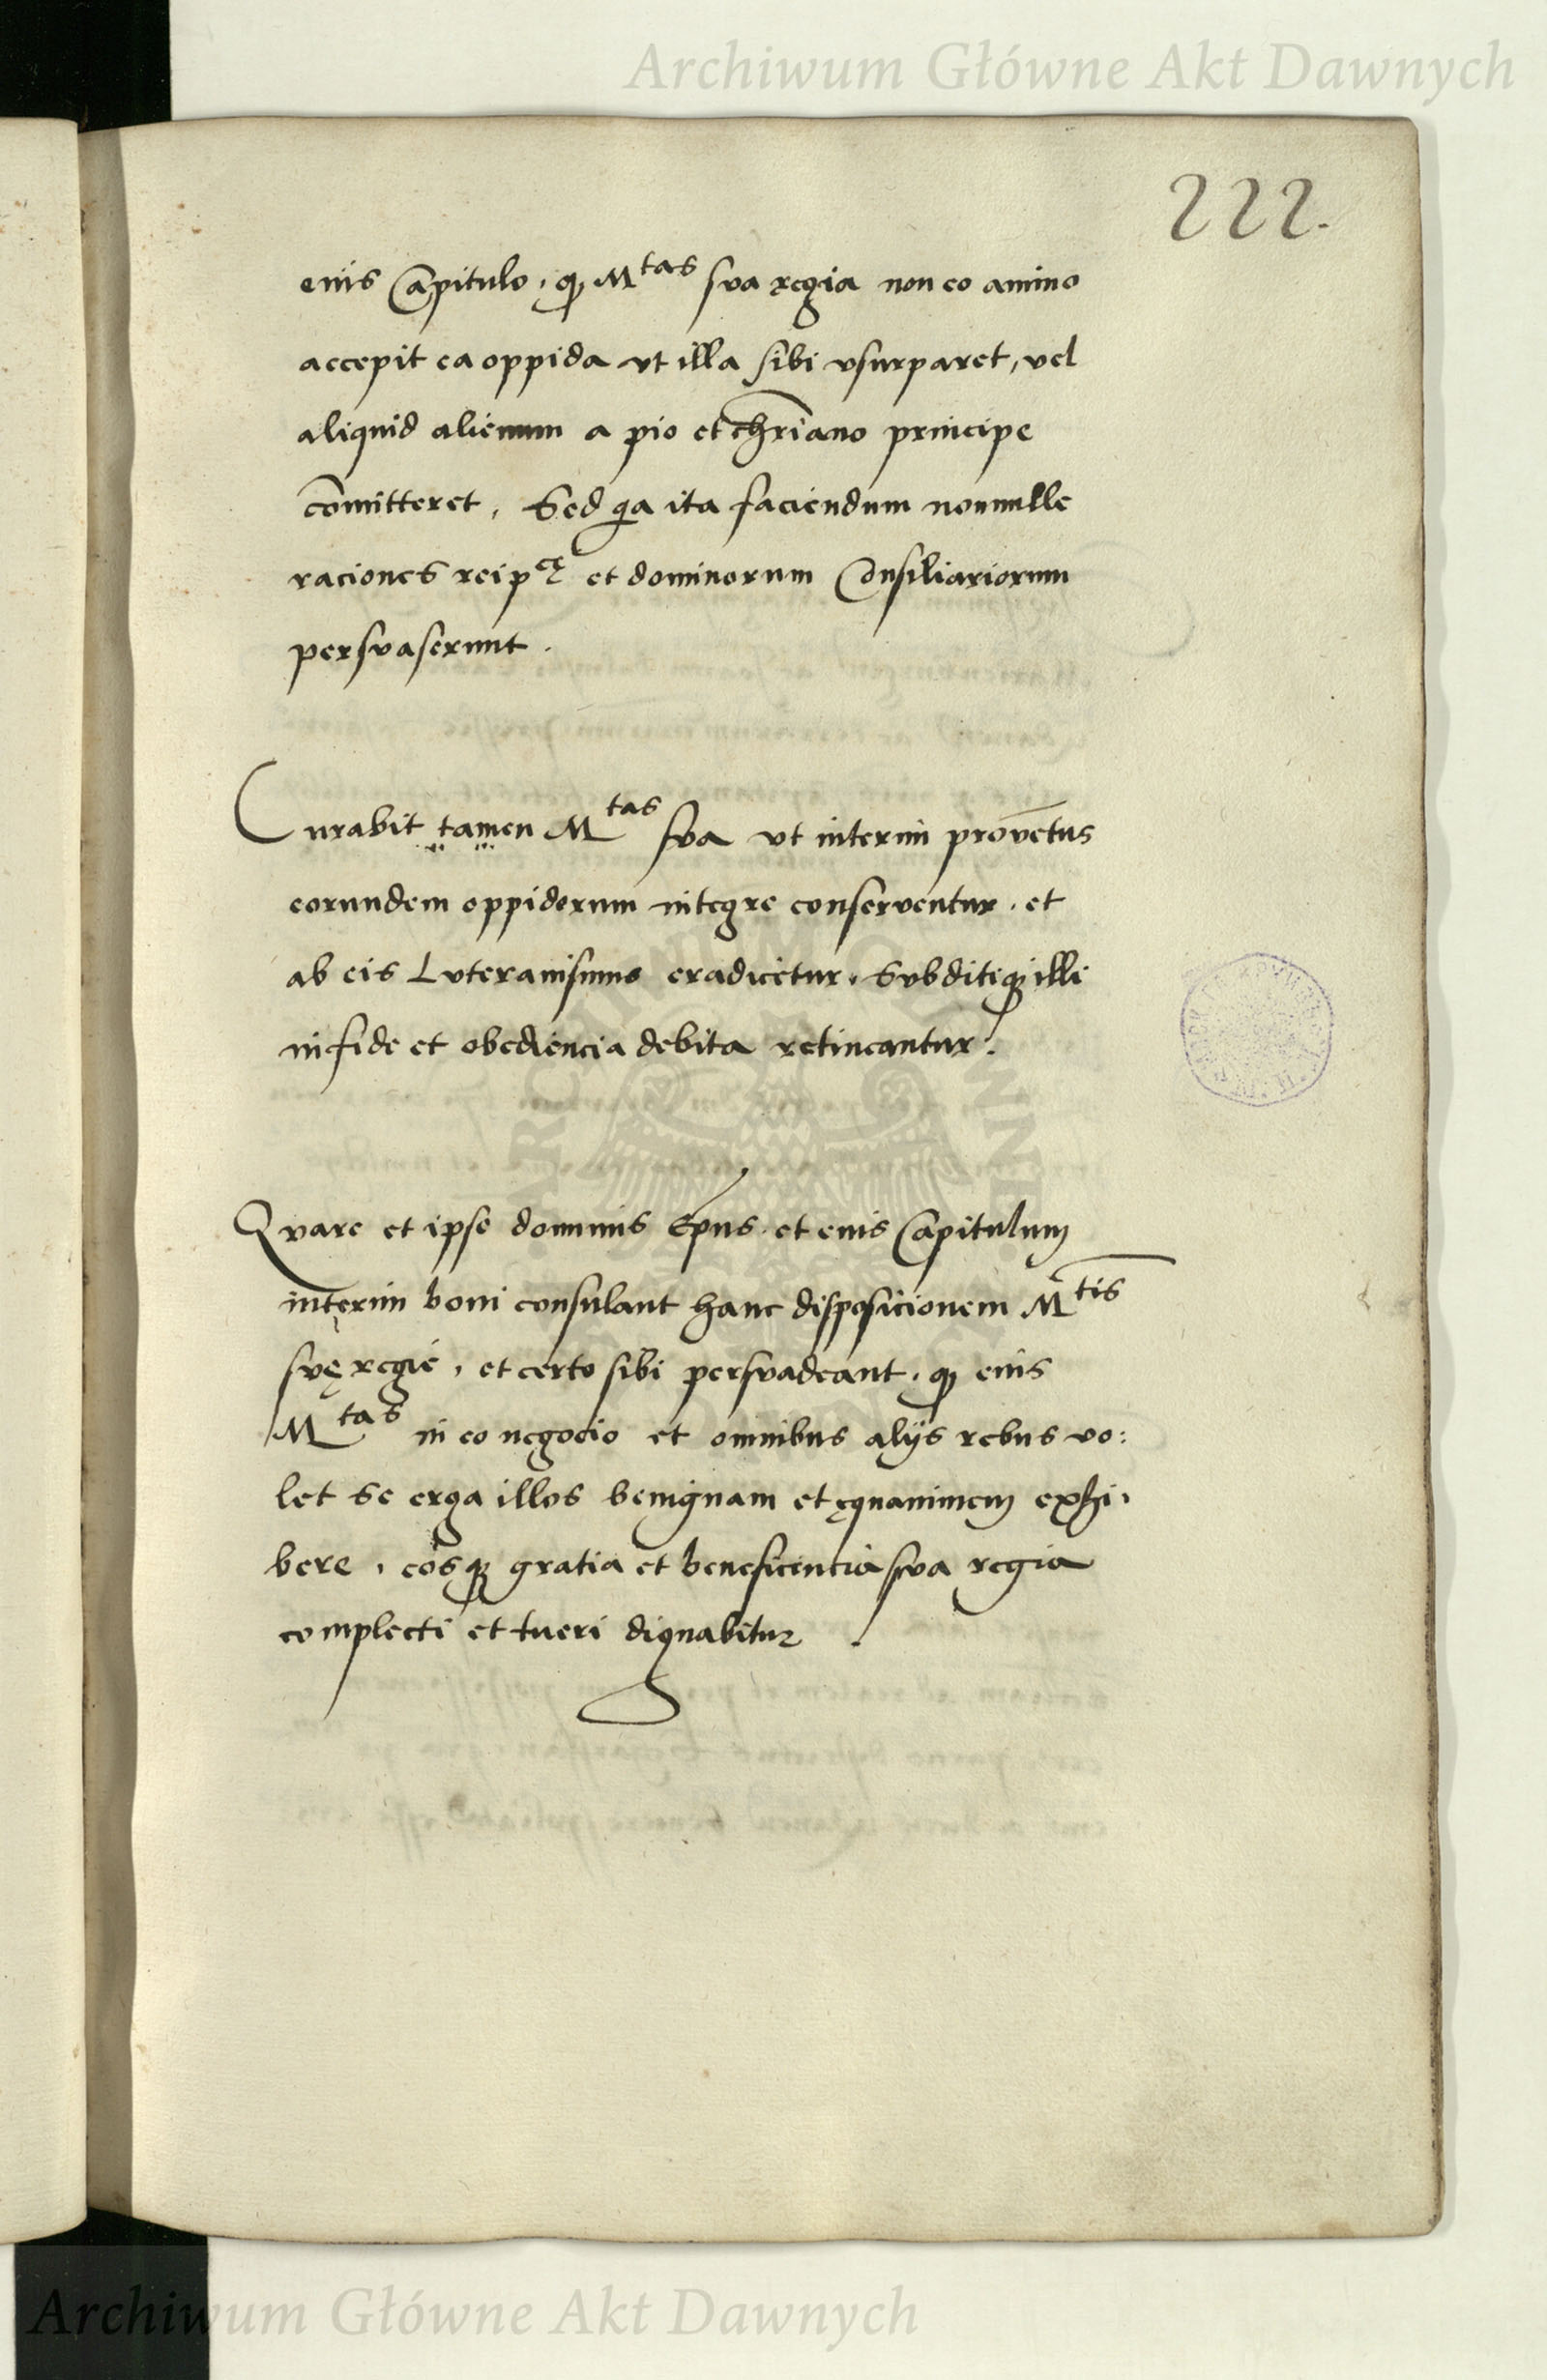 Archiwum Główne Akt Dawnych
222.
eius Capitulo, qꝫ M^tas sva regia non eo animo
accepit ea oppida vt illa sibi vsurparet, vel
aliquid alienum a pio et chri̅ano principe
co̅mitteret, Sed qa ita faciendum nonnulle
raciones reip^cę et dominorum Consiliariorum
persvaserunt.
Curabit tamen M^tas sva vt interim prove̅tus
eorundem oppidorum integre conserventur, et
ab eis Lvteranismus eradicetur, Svbditiqꝫ illi
in fide et obediencia debita retineantur.
Qvare et ipse dominus Ep̅us et eius Capitulum
interim boni consulant hanc disposicionem M^tis
svę regie, et certo sibi persvadeant, qꝫ eius
M^tas in eo negocio et omnibus alijs rebus vo:
let se erga illos benignam et ęquanimem exhi,
bere, eosqꝫ gratia et beneficentia sva regia
complecti et tueri dignabitur.
Archiwum Główne Akt Dawnych